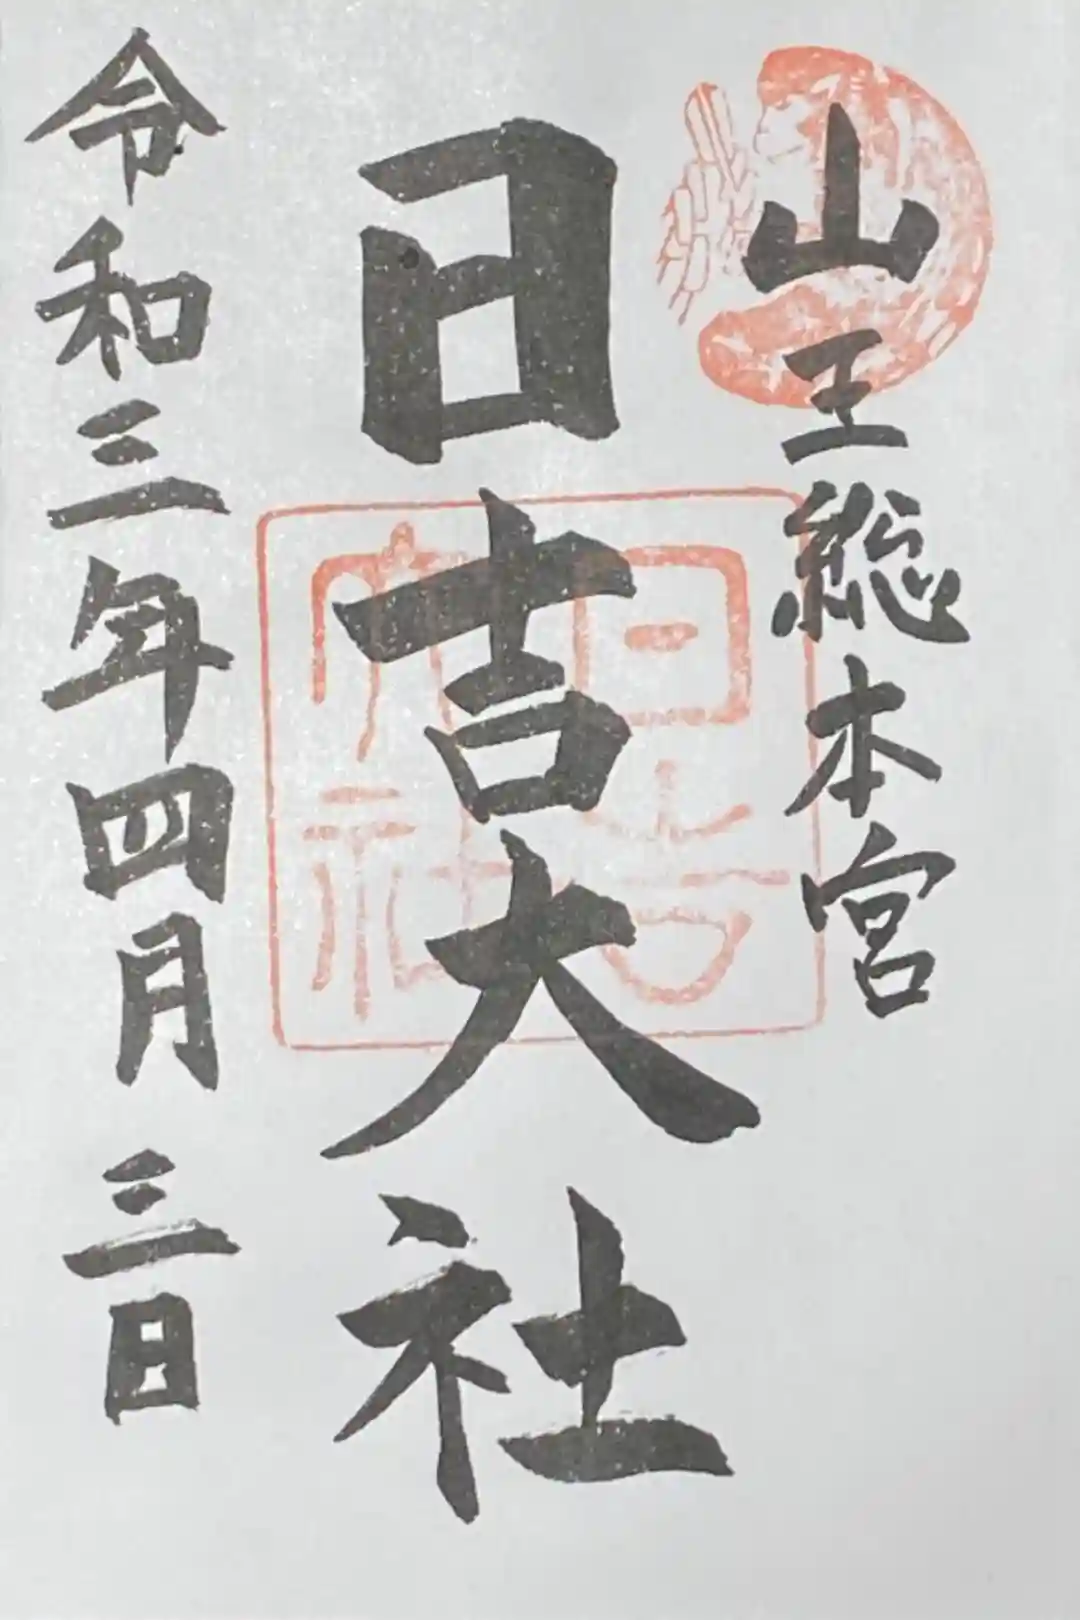 山王総本宮
日吉大社
日吉
大社
令和三年四月三日